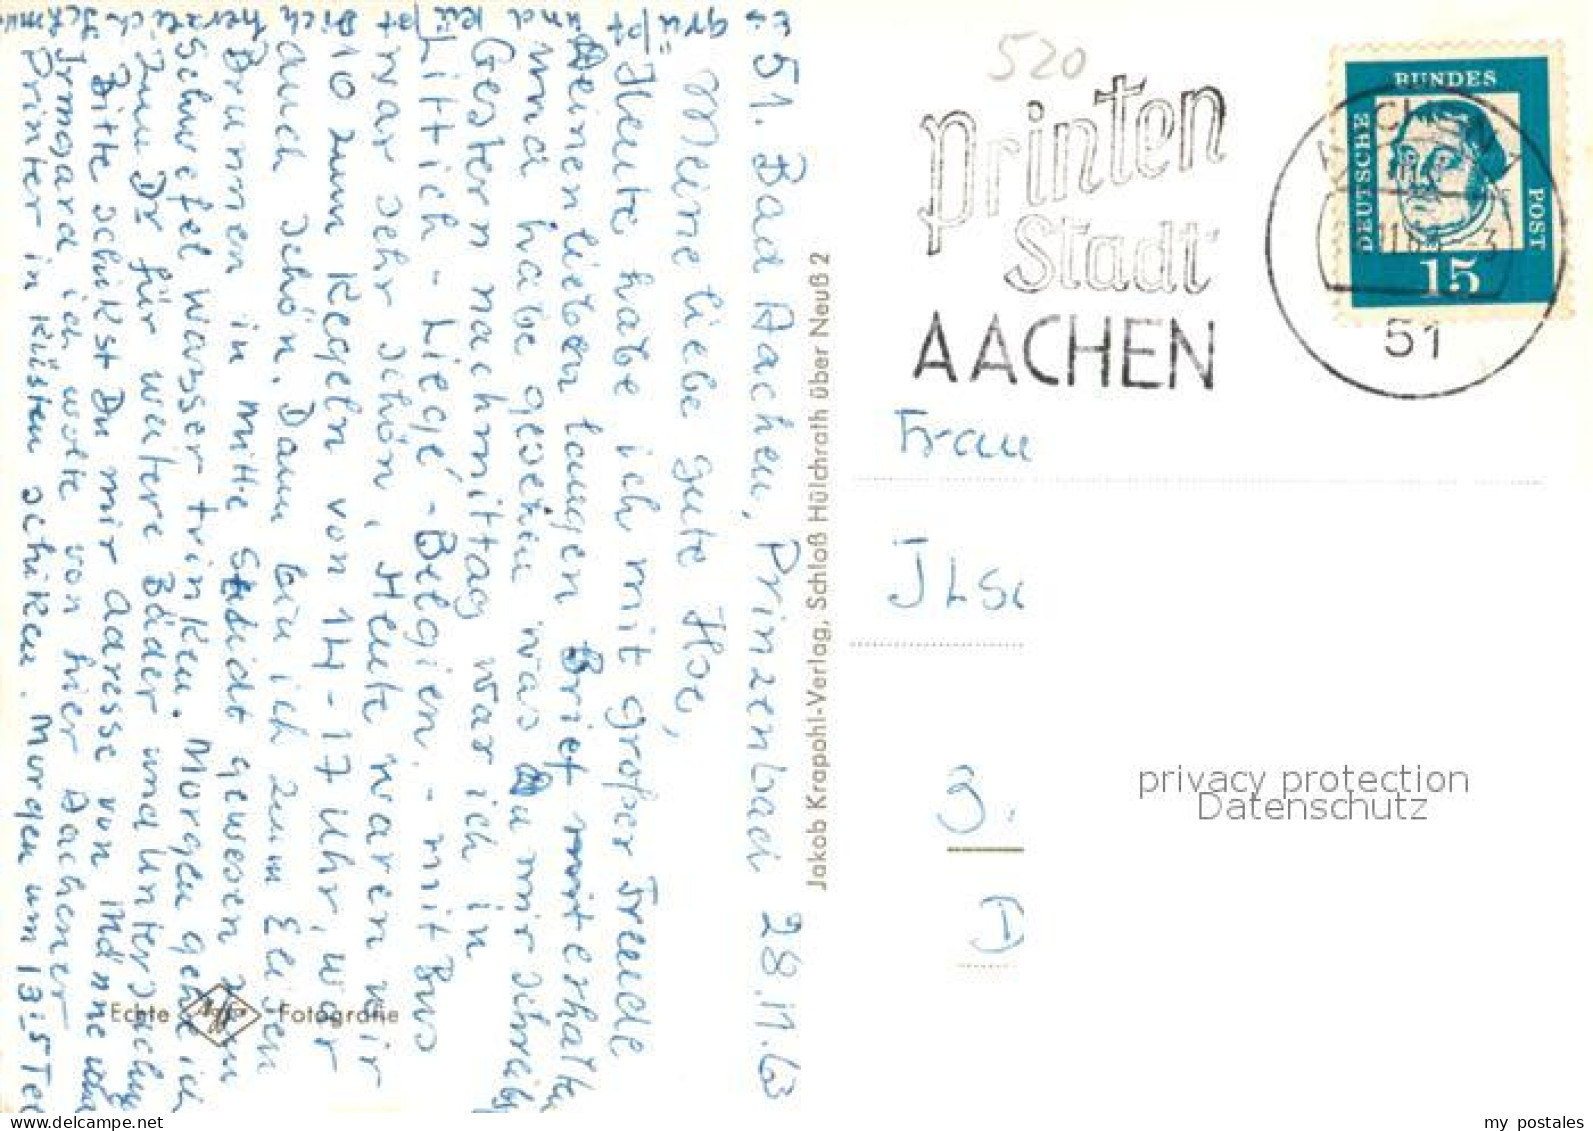 51. Bad Aachen, Prinzenbad 28.11.63
Meine liebe gute Ilse,
Heute habe ich mit großer Freude
Deinen lieben langen Brief erhalten
und habe gesehen was Du mir schreibst
Gestern nachmittag war ich in
Littich - Liegé - Belgien. - mit Bus
war sehr schön, Heute waren wir
10 zum Kegeln von 14-17 Uhr, war
auch schön. Dann bin ich zum Elisen
Brunnen in mitte Stadt gewesen zum
Schwefel wasser trinken. Morgen gehe ich
zum Dr für weitere Bäder und Untersuchung
Bitte schikst Du mir Adresse von Männe und
Irmgard ich wolte von hier Aachener
Printer in kisten schiken. Morgen um 13-5 Tee
es grüßt und küßt Dich herzlich
Jakob Krapohl-Verlag, Schloß Hülchrath über Neuß 2
Echte Agfa Fotografie
520
Printen
Stadt
AACHEN
DEUTSCHE
BUNDES
POST
15
51
Frau
Ilse
3.
D
privacy protection
Datenschutz
my postales